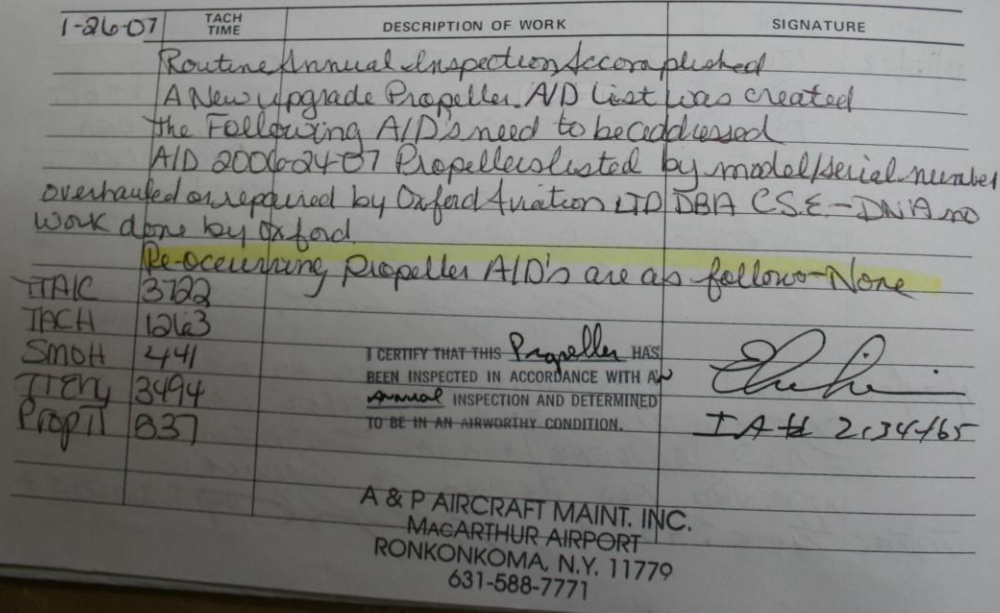 1-26-07 TACH TIME DESCRIPTION OF WORK SIGNATURE
Routine Annual Inspection Accomplished
A New upgrade Propeller A/D List was created
the Following A/D's need to be addressed
A/D 2006-24-07 Propellers listed by model/serial number
overhauled or repaired by Oxford Aviation LTD DBA C.S.E.-DNA no
work done by Oxford
Re-occurring Propeller A/D's are as follows-None
TTAIC 3722
TACH 1263
SMOH 441
3494
PropTT 837
I CERTIFY THAT THIS Propeller HAS
BEEN INSPECTED IN ACCORDANCE WITH AN
Annual INSPECTION AND DETERMINED
TO BE IN AN AIRWORTHY CONDITION.
IA# 2134465
A & P AIRCRAFT MAINT. INC.
MACARTHUR AIRPORT
RONKONKOMA, N.Y. 11779
631-588-7771